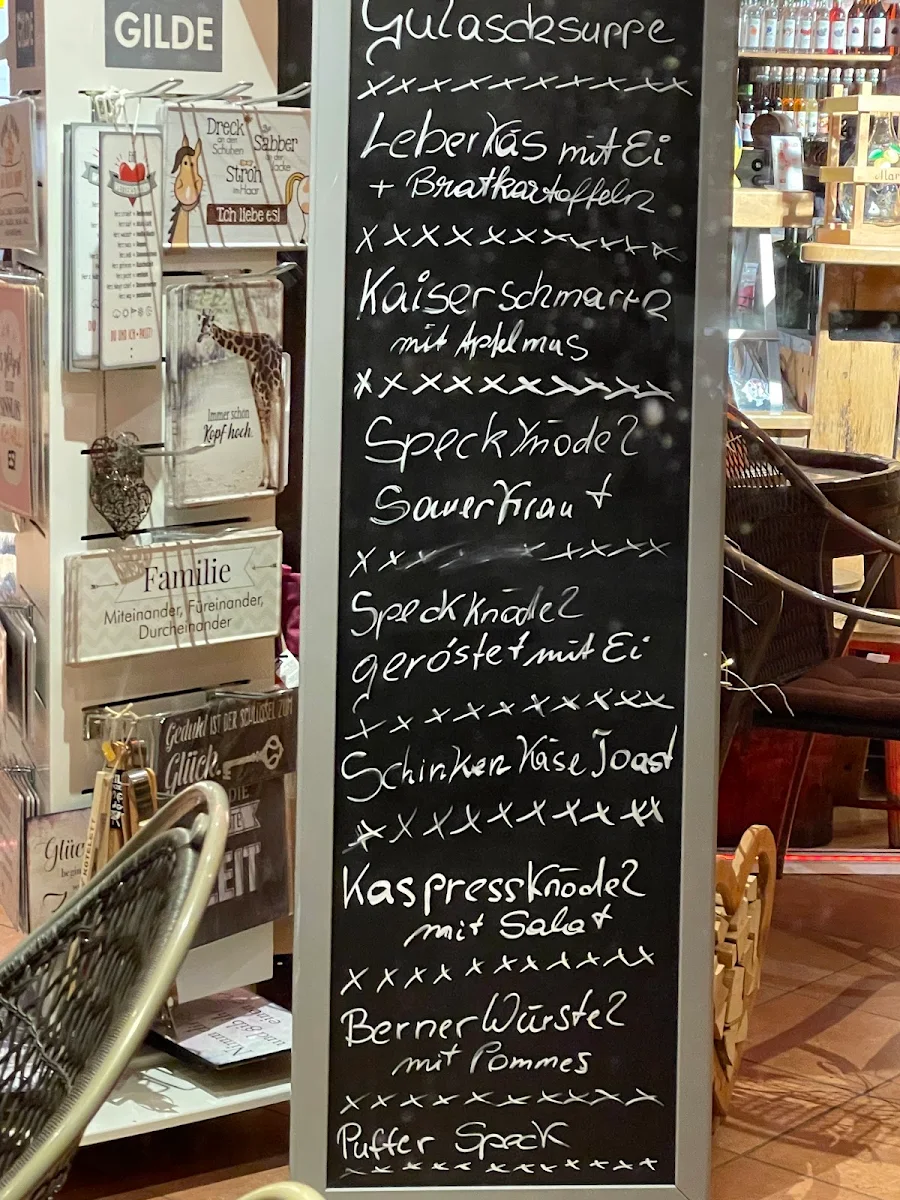 GILDE
Dreck
an den
Schuhen
Sabber
an der
Jacke
Stroh
im Haar
Ich liebe es!
Immer schön
Kopf hoch.
Familie
Miteinander, Füreinander,
Durcheinander
Geduld IST DER SCHLÜSSEL ZUM
Glück.
DIE
ZEIT
Gulaschsuppe
xxxxxxxxxxx
Leberkäs mit Ei
+ Bratkartoffeln
xxxxxxxxxxxx
Kaiserschmarrn
mit Apfelmus
xxxxxxxxxxxx
Speckknödel
Sauerkraut
xxxxxxxx
Speckknödel
geröstet mit Ei
xxxxxxxxxxx
Schinken Käse Toast
xxxxxxxxxxx
Kaspressknödel
mit Salat
xxxxxxxxxxx
Berner Würstel
mit Pommes
xxxxxxxxxxx
Puffer Speck
xxxxxxxxxxx